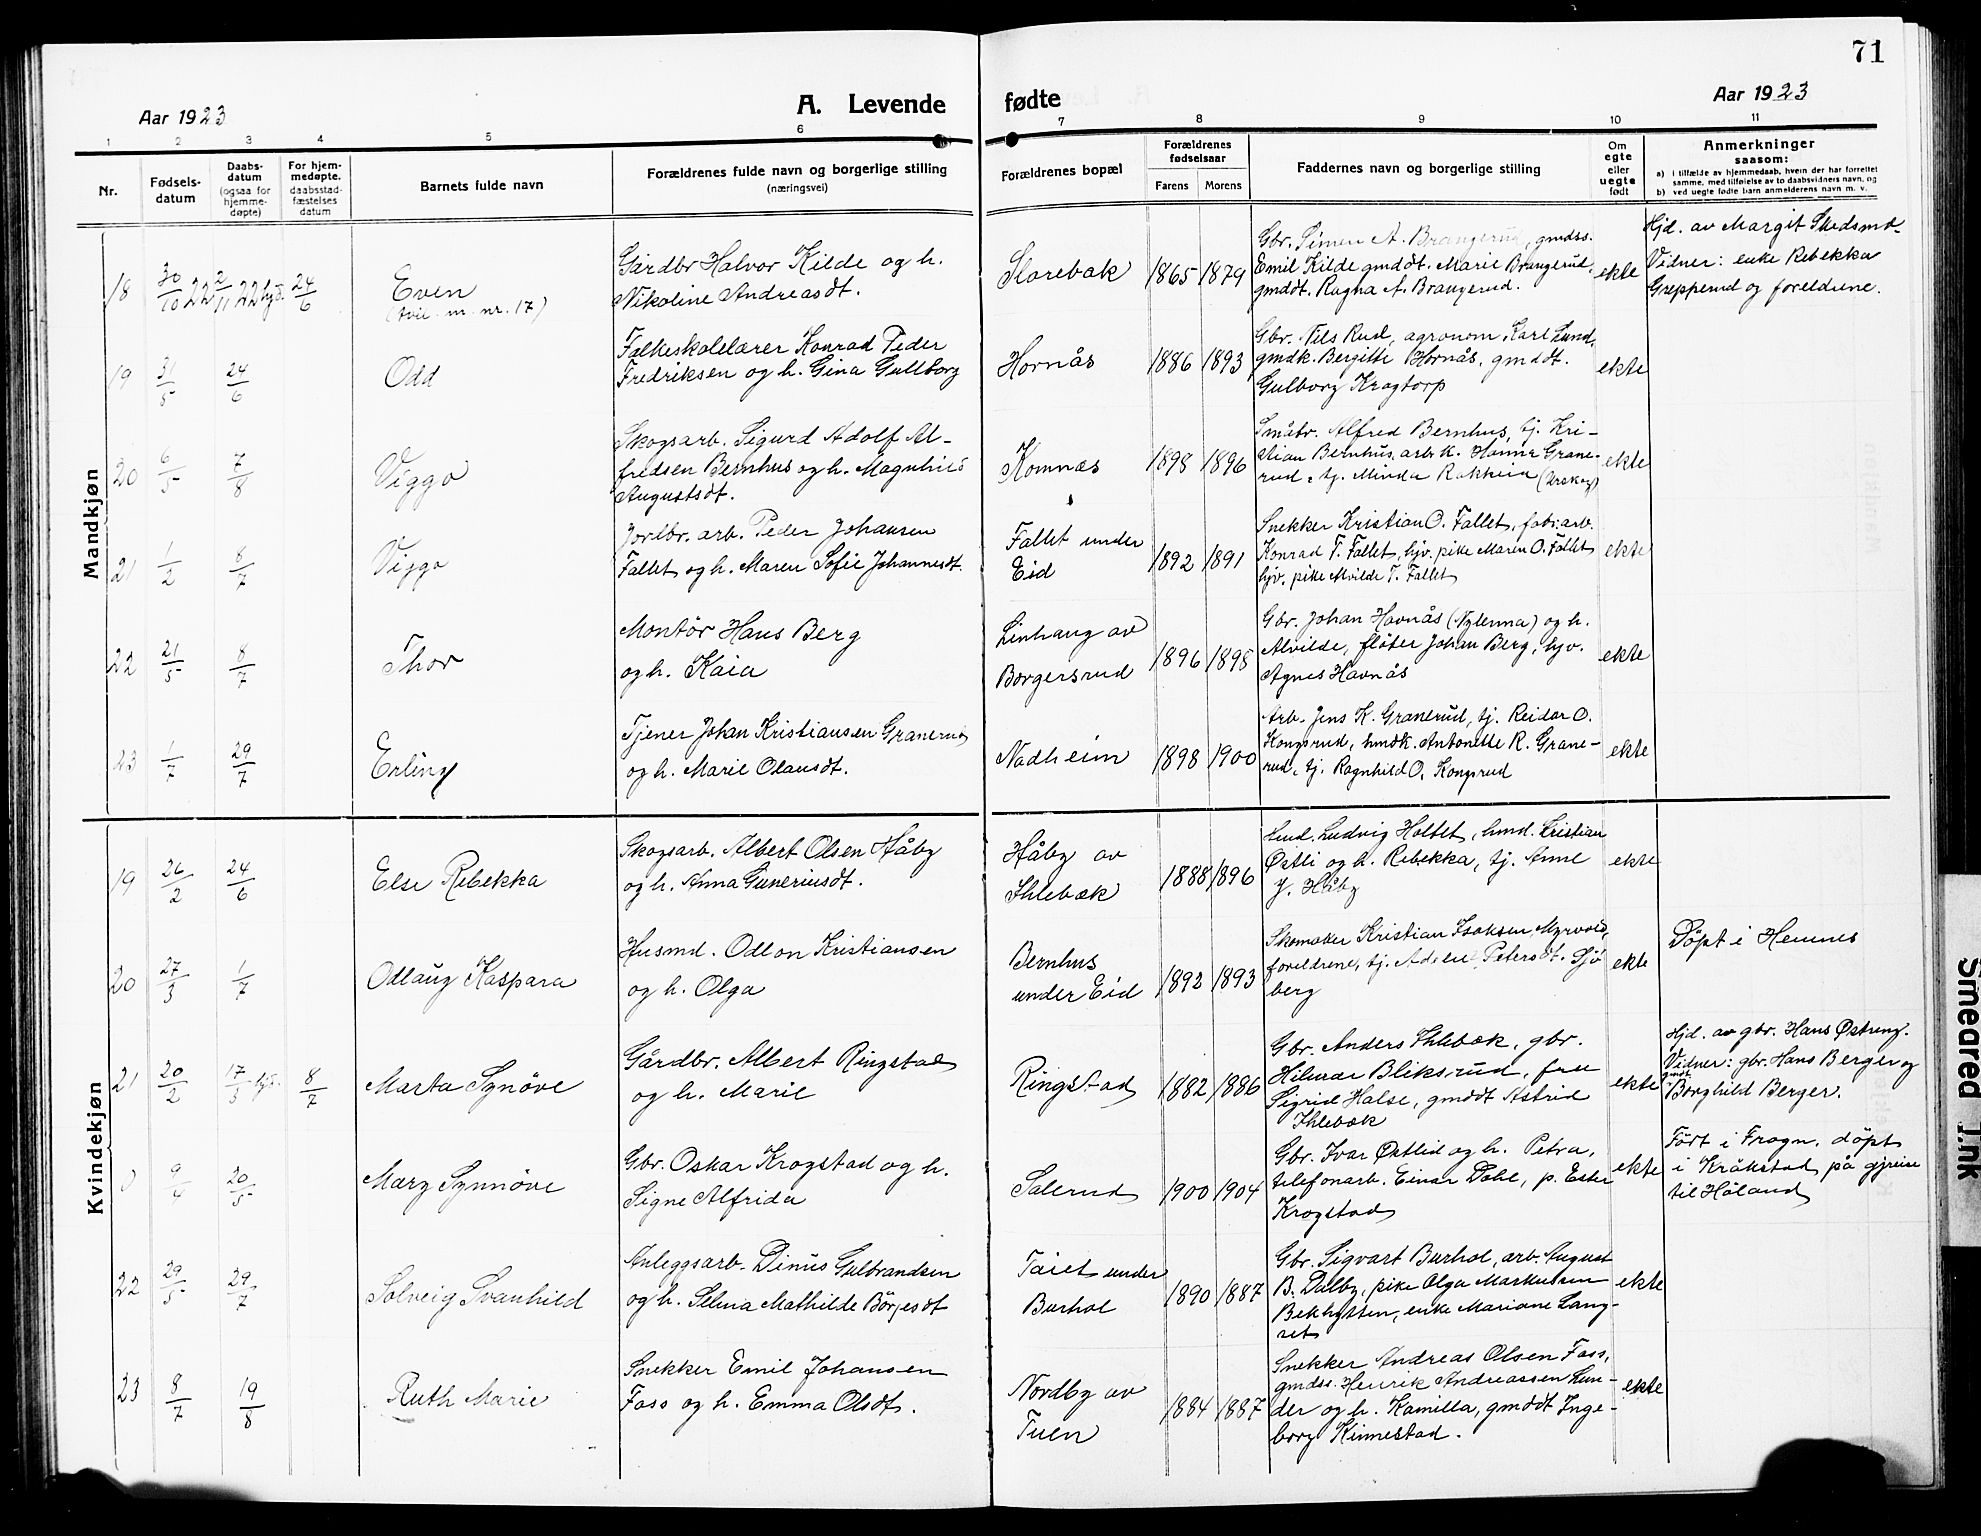 71
Aar 1923
A. Levende
fødte
Aar 1923
1 2 3 4 5 6 7 8 9 10 11
Nr.
Fødsels-
datum
Daabs-
datum
(ogsaa for
hjemme-
døpte)
For hjem-
medøpte.
daabsstad-
fæstelses
datum
Barnets fulde navn
Forældrenes fulde navn og borgerlige stilling
(næringsvei)
Forældrenes bopæl
Forældrenes
fødselsaar
Farens Morens
Faddernes navn og borgerlige stilling
Om
egte
eller
uegte
født
Anmerkninger
saasom:
a) i tilfælde av hjemmedaab, hvem der har forrettet
samme, med tilføielse av to daabsvidners navn, og
b) ved uegte fødte barn anmelderens navn m. v.
Mandkjøn
18 30/10 22 2/11 22 hjd. 24/6
Even
(tvil. m. nr. 17)
Gårdbr Halvor Kilde og h.
Nikoline Andreasdt.
Slorebak
1865 1879
Gbr. Simen A. Brangerud, gmdss.
Emil Kilde gmddt. Marie Brangerud,
gmddt. Ragna A. Brangerud.
ekte
Hjd. av Margit Skedsmo.
Vidner: enke Rebekka
Grepperud og foreldrene.
19 31/5 24/6
Odd
Folkeskolelærer Konrad Peder
Fredriksen og h. Gina Gullborg
Hornås
1886 1893
Gbr. Nils Rud, agronom Karl Lund,
gmdk. Bergitte Hornås, gmddt.
Gulborg Krogtorp
ekte
20 6/5 7/8
Viggo
Skogsarb. Sigurd Adolf Al-
fredsen Bernhus og h. Magnhild
Augustsdt.
Komnæs
1898 1896
Småbr. Alfred Bernhus, tj. Kri-
stian Bernhus, arb.k. Hanna Grane-
rud, tj. Minda Rakkeia (Urskog)
ekte
21 1/2 8/7
Viggo
Jordbr. arb. Peder Johansen
Fallet og h. Maren Sofie Johannesdt.
Fallet under
Eid
1892 1891
Snekker Kristian O. Fallet, fabr.arb.
Konrad T. Fallet, hjv. pike Maren O. Fallet
hjv. pike Alvilde T. Fallet
ekte
22 21/5 8/7
Thor
Montör Hans Berg
og h. Kaia
Linhaug av
Borgersrud
1896 1895
Gbr. Johan Hovnås (Nylenna) og h.
Alvilde, fløter Johan Berg, hjv.
Agnes Havnås
ekte
23 1/7 29/7
Erling
Tjener Johan Kristiansen Granerud
og h. Marie Olausdt.
Nadheim
1898 1900
Arb. Jens K. Granerud, tj. Reidar O.
Kongsrud, hmdk. Antonette R. Grane-
rud, tj. Ragnhild O. Kongsrud
ekte
Kvindekjøn
19 26/2 24/6
Else Rebekka
Skogsarb. Albert Olsen Håby
og h. Anna Guneriusdt.
Håby av
Ihlebæk
1888 1896
hmd. Ludvig Holtet, hmd. Kristian
Østli og h. Rebekka, tj. Anne
J. Håby
ekte
20 27/3 1/7
Odlaug Kaspara
Husmd. Odlon Kristiansen
og h. Olga
Bernhus
under Eid
1892 1893
Skomaker Kristian Isaksen Myrvold,
foreldrene, tj. Petersdt. Sjö
berg
ekte
Döpt i Hemnes
21 20/2 17/3 hjd. 8/7
Marta Synöve
Gårdbr. Albert Ringstad
og h. Marie
Ringstad
1882 1886
Gbr. Anders Ihlebæk, gbr.
Hilmar Bliksrud, fru
Sigrid Halse, gmddt Astrid
Ihlebæk
ekte
Hjd. av gbr. Hans Østreng.
Vidner: gbr. Hans Berger og
gmdt. Borghild Berger.
0 9/4 20/5
Mary Synnöve
Gbr. Oskar Krogstad og h.
Signe Alfrida
Salerud
1900 1904
Gbr. Ivar Østlid og h. Petra,
telefonarb. Einar Dahl, p. Ester
Krogstad
ekte
Fört i Frogn, döpt
i Kråkstad på gjreise
til Höland
22 29/5 29/7
Solveig Svanhild
Anleggsarb. Dinus Gulbrandsen
og h. Selma Mathilde Börjesdt
Taiet under
Burhol
1890 1887
Gbr. Sigvart Burhol, arb. August
B. Dalby, pike Olga Markussen
Bekhytten, enke Mariane Lang-
set
ekte
23 8/7 19/8
Ruth Marie
Snekker Emil Johansen
Foss og h. Emma Olsdt.
Nordby av
Tuen
1884 1887
Snekker Andreas Olsen Foss,
gmdss. Henrik Andreassen Lun-
der og h. Kamilla, gmddt Inge-
borg Kinnestad.
ekte
Smeared Ink